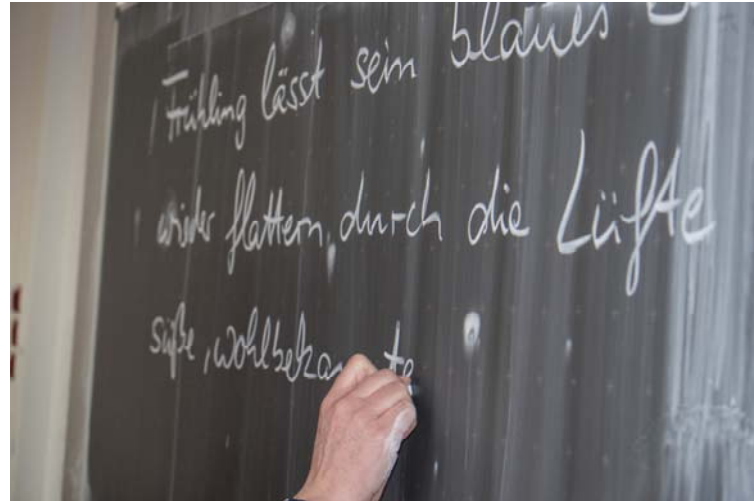 Frühling lässt sein blaues
wieder flattern, durch die Lüfte
süße, wohlbekannte